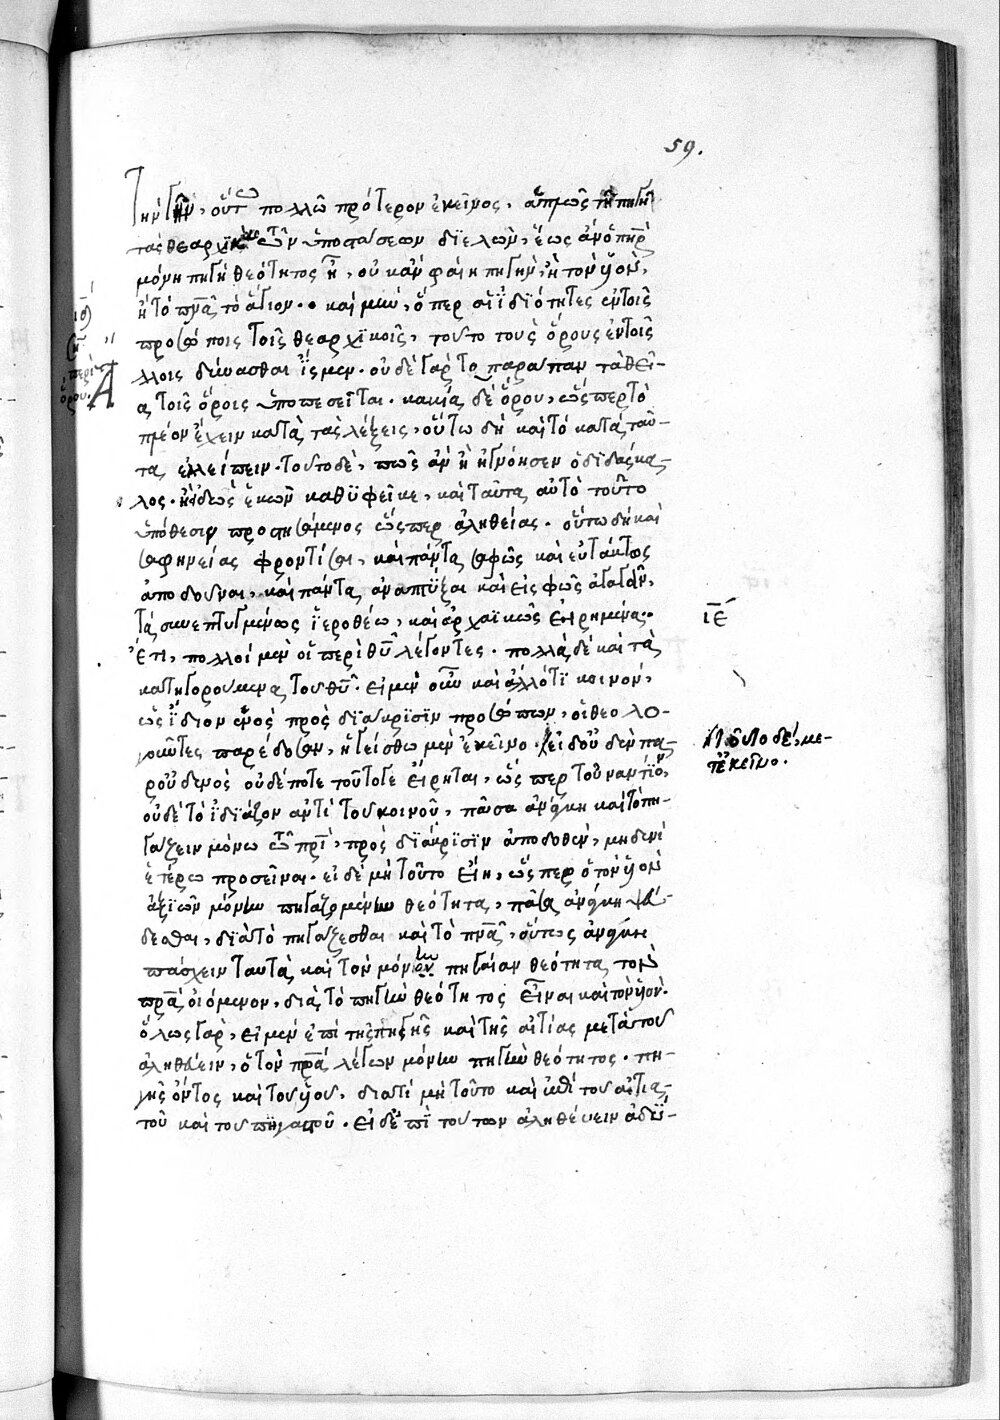 59.
πηγήν, οὕτω πολλῷ πρότερον ἐκεῖνος, ἁπλῶς τὴν πηγὴν
τὰς θεαρχικὰς τῶν ὑποστάσεων διελὼν, ἕως ἂν ὁ πηρ
μόνη πηγὴ θεότητος ᾖ, οὐκ ἂν φαίη πηγὴν, ἢ τὸν υἱὸν,
ἢ τὸ πνα τὸ ἅγιον. καὶ μὴν, ὅπερ αἱ ἰδιότητες ἐν τοῖς
προσώποις τοῖς θεαρχικοῖς, τοῦτο τοὺς ὅρους ἐν τοῖς
ἄλλοις δύνασθαι ἴσμεν. οὐδὲ γὰρ τὸ παράπαν τὰ θεῖ-
α τοῖς ὅροις ὑποπεσεῖται. κακία δὲ ὅρου, ὥσπερ τὸ
πλέον ἔχειν κατὰ τὰς λέξεις, οὕτω δὴ καὶ τὸ κατὰ ταῦ-
τα ἐλλείπειν. τοῦτο δὲ, πῶς ἂν ἢ ἠγνόησεν ὁ διδάσκα-
λος. ἢ εἰδὼς ἑκὼν καθυφεῖκε, καὶ ταῦτα αὐτὸ τοῦτο
ὑπόθεσιν προστησάμενος ὥσπερ ἀληθείας. οὕτω δὴ καὶ
σαφηνείας φροντίσαι, καὶ πάντα σαφῶς καὶ εὐτάκτως
ἀποδοῦναι, καὶ πάντα ἀναπτύξαι καὶ εἰς φῶς ἀγαγεῖν,
τὰ συνεπτυγμένως ἱεροθέω, καὶ ἀρχαϊκῶς εἰρημένα.
ἔτι, πολλοὶ μὲν οἱ περὶ θυ λέγοντες. πολλὰ δὲ καὶ τὰ
κατηγορούμενα τοῦ θυ. εἰ μὲν οὖν καὶ ἄλλό τι κοινὸν,
ὡς ἴδιον ἑνὸς πρὸς διάκρισιν προσώπων, οἱ θεολο-
γοῦντες παρέδοσαν, ἡγείσθω μὲν ἐκεῖνο. εἰ δ' οὖν παρ-
ρ' οὐδενὸς οὐδέποτε τοῦτό γε εἴρηται, ὥσπερ τοὐναντίον,
οὐδὲ τὸ ἰδιάζον ἀντὶ τοῦ κοινοῦ, πᾶσα ἀνάγκη καὶ τὸ πη-
γάζειν μόνω τῷ πρὶ, πρὸς διάκρισιν ἀποδοθὲν, μηδενὶ
ἑτέρω προσεῖναι. εἰ δὲ μὴ τοῦτο εἴη, ὥσπερ ὁ τὸν υἱὸν
ἀξιῶν μόνην πηγαζομένην θεότητα, πᾶσα ἀνάγκη ψεύ-
δεσθαι, διὰ τὸ πηγάζεσθαι καὶ τὸ πνα, οὕτως ἀνάγκη
πάσχειν ταυτὰ καὶ τὸν μόνην πηγαίαν θεότητα τὸν
πρα οἰόμενον, διὰ τὸ πηγὴν θεότητος εἶναι καὶ τὸν υἱὸν.
ὅλως γὰρ, εἰ μὲν ἐπὶ τῆς πηγῆς καὶ τῆς αἰτίας μετὰ τοῦ
ἀληθεύειν, ὁ τὸν πρα λέγων μόνην πηγὴν θεότητος. πη-
γῆς ὄντος καὶ τοῦ υἱοῦ, διατί μὴ τοῦτο καὶ ἐπὶ τοῦ αἰτια-
τοῦ καὶ τοῦ πηγαστοῦ. εἰ δὲ ἐπὶ τούτων ἀληθεύειν ἀδύ-
περὶ
ὅρου.
ιε
τοῦτο δέ, με-
τ' ἐκεῖνο.